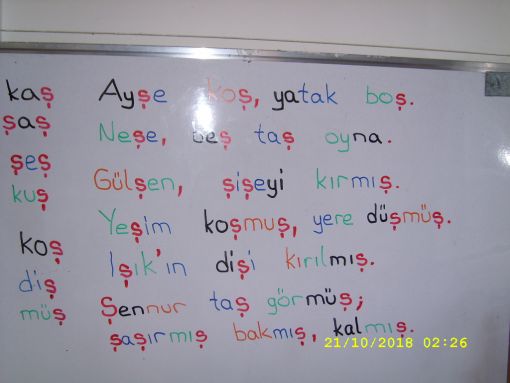 kaş
şaş
şeş
kuş
koş
diş
müş
Ayşe koş, yatak boş.
Neşe, beş taş oyna.
Gülşen, şişeyi kırmış.
Yeşim koşmuş, yere düşmüş.
Işık'ın dişi kırılmış.
Şennur taş görmüş;
şaşırmış bakmış, kalmış.
21/10/2018 02:26